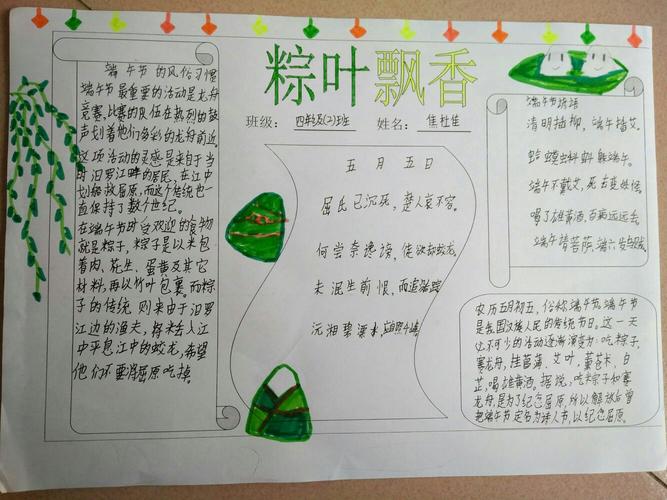 粽叶飘香
班级：四年级(2)班 姓名：焦杜佳
端午节的风俗习惯
端午节最重要的活动是龙舟
竞赛,比赛的队伍在热烈的鼓
声划着他们多彩的龙舟前进。
这项活动的灵感是来自于当
时汨罗江畔的居民,在江中
划船救屈原,而这个传统也一
直保持了数个世纪。
在端午节时受欢迎的食物
就是粽子,粽子是以米包
着肉、花生、蛋黄及其它
材料,再以竹叶包裹。而粽
子的传统则来由于汨罗
江边的渔夫,将米丢入江
中平息江中的蛟龙,希望
他们不要将屈原吃掉。
五月五日
屈氏已沉死,楚人哀不容。
何尝奈谗谤,徒欲却蛟龙。
未泯生前恨,而追
沅湘碧潭水,
端午节谚语
清明插柳,端午插艾。
蛤蟆蝌蚪躲端午。
端午不戴艾,死去变妖怪。
喝了雄黄酒,百病远远丢。
端午请菩萨,端六发
农历五月初五,俗称端午节。端午节
是我国汉族人民的传统节日。这一天
必不可少的活动逐渐演变为:吃粽子,
赛龙舟,挂菖蒲、艾叶,薰苍术、白
芷,喝雄黄酒。据说,吃粽子和赛
龙舟,是为了纪念屈原,所以解放后曾
把端午节定名为诗人节,以纪念屈原。